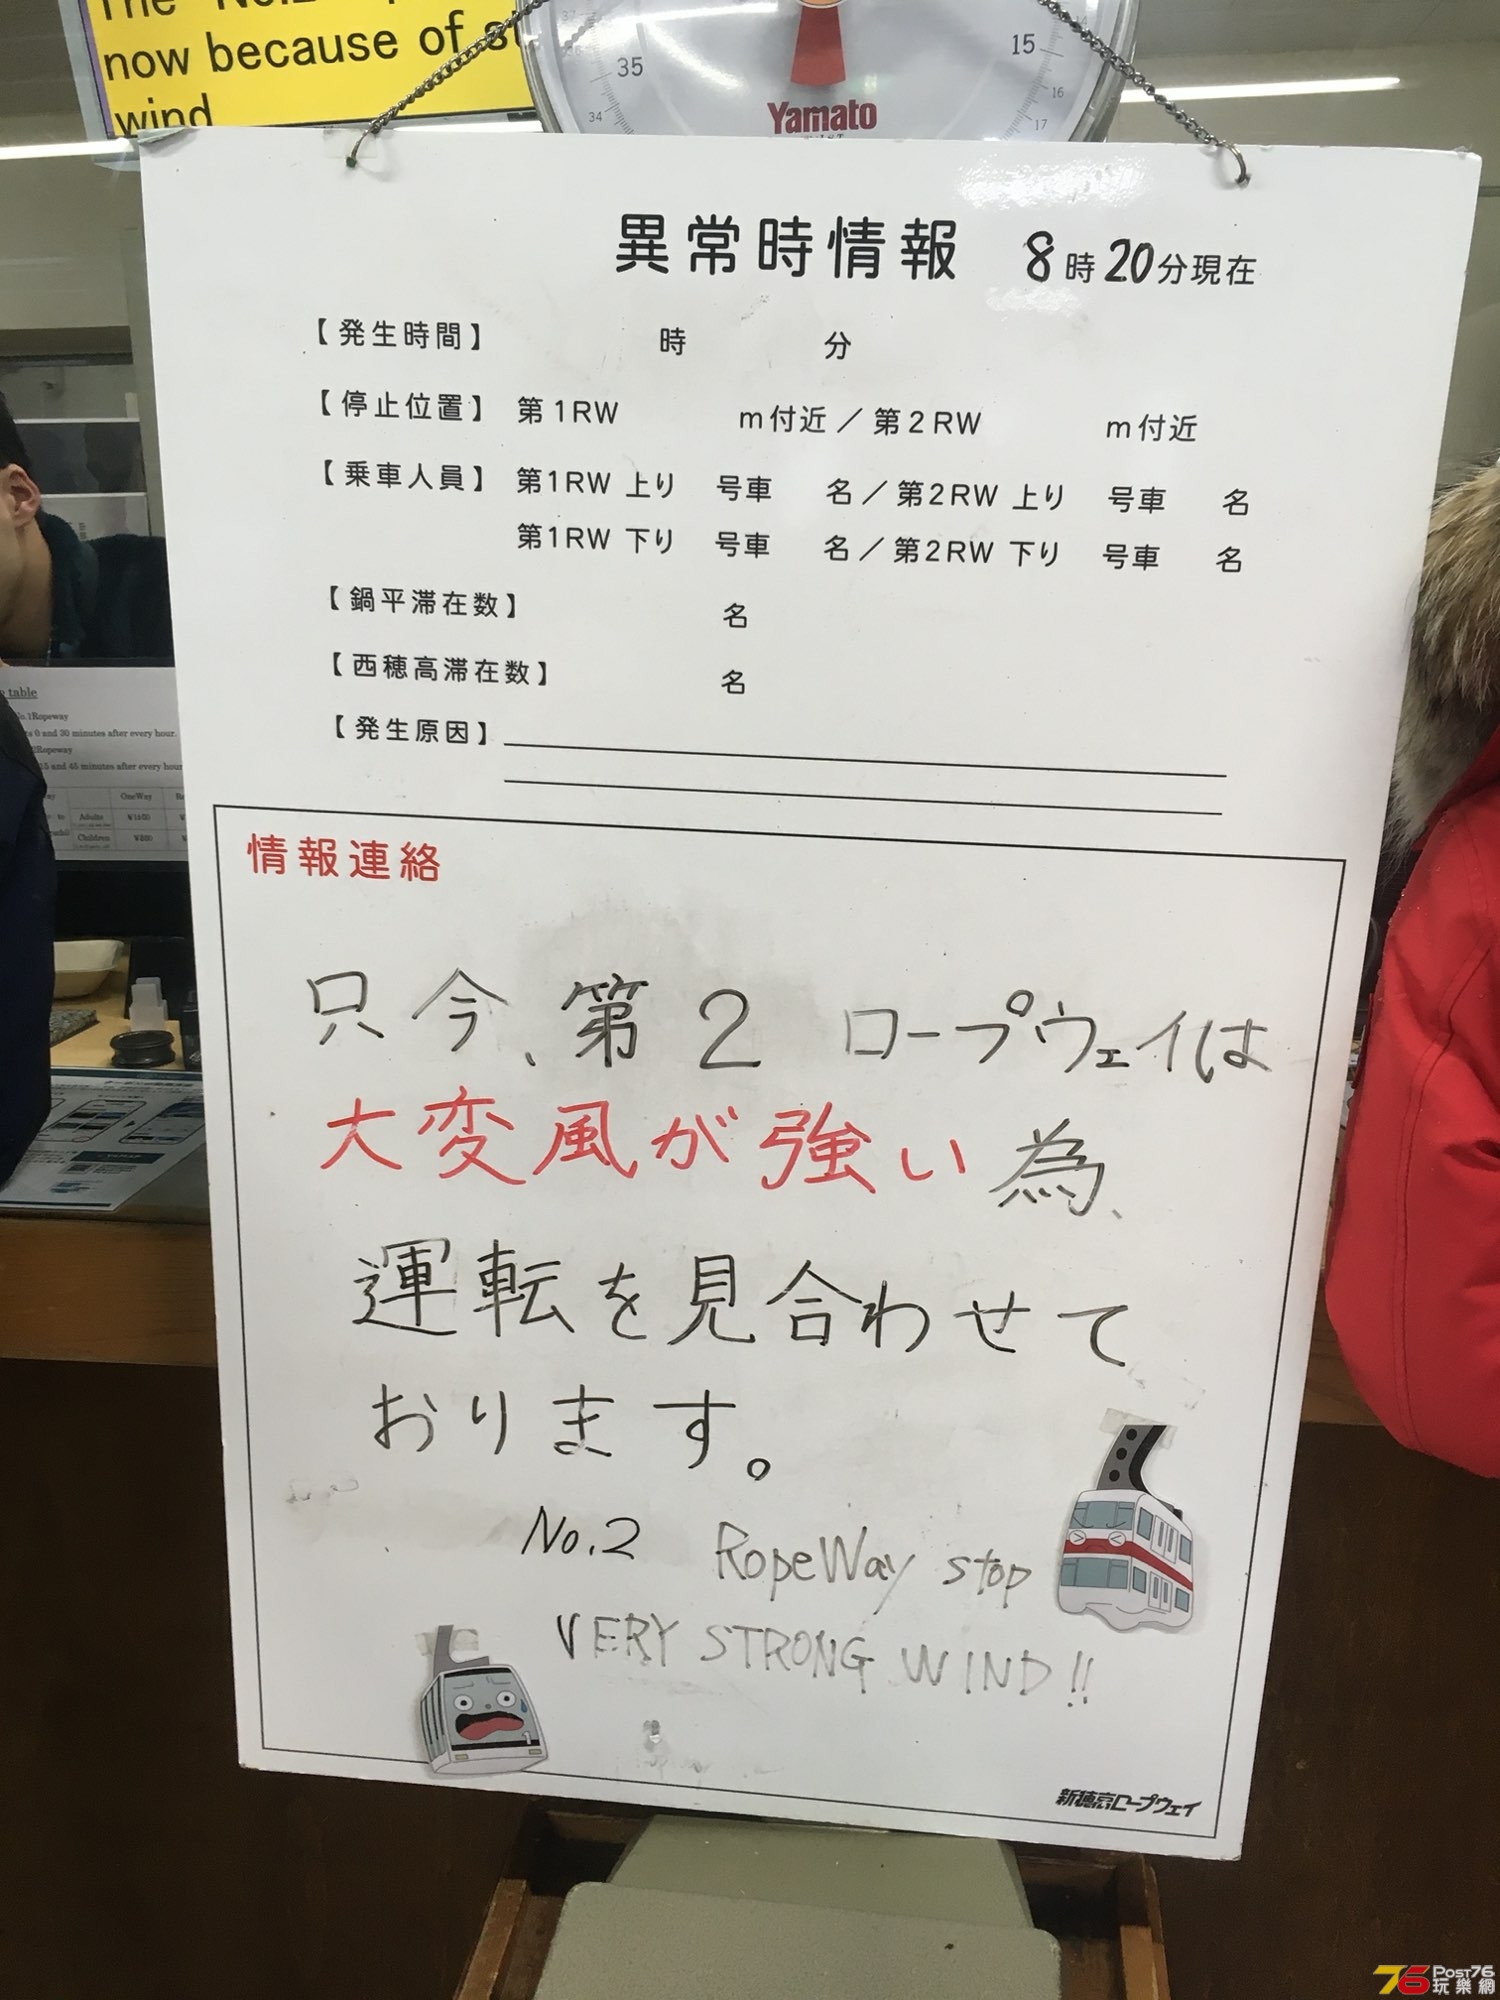 The No.2
now because of
wind
35
34
15
16
17
Yamato
異常時情報 8時20分現在
【発生時間】 時 分
【停止位置】 第1RW m付近／第2RW m付近
【乗車人員】 第1RW 上り 号車 名／第2RW 上り 号車 名
第1RW 下り 号車 名／第2RW 下り 号車 名
【鍋平滞在数】 名
【西穂高滞在数】 名
【発生原因】
table
No.1Ropeway
0 and 30 minutes after every hour.
2Ropeway
15 and 45 minutes after every hour
OneWay
Adults
Children
情報連絡
只今、第2 ロープウェイは
大変風が強い為、
運転を見合わせて
おります。
No.2 RopeWay stop
VERY STRONG WIND!!
1
新穂高ロープウェイ
76 Post76
玩樂網